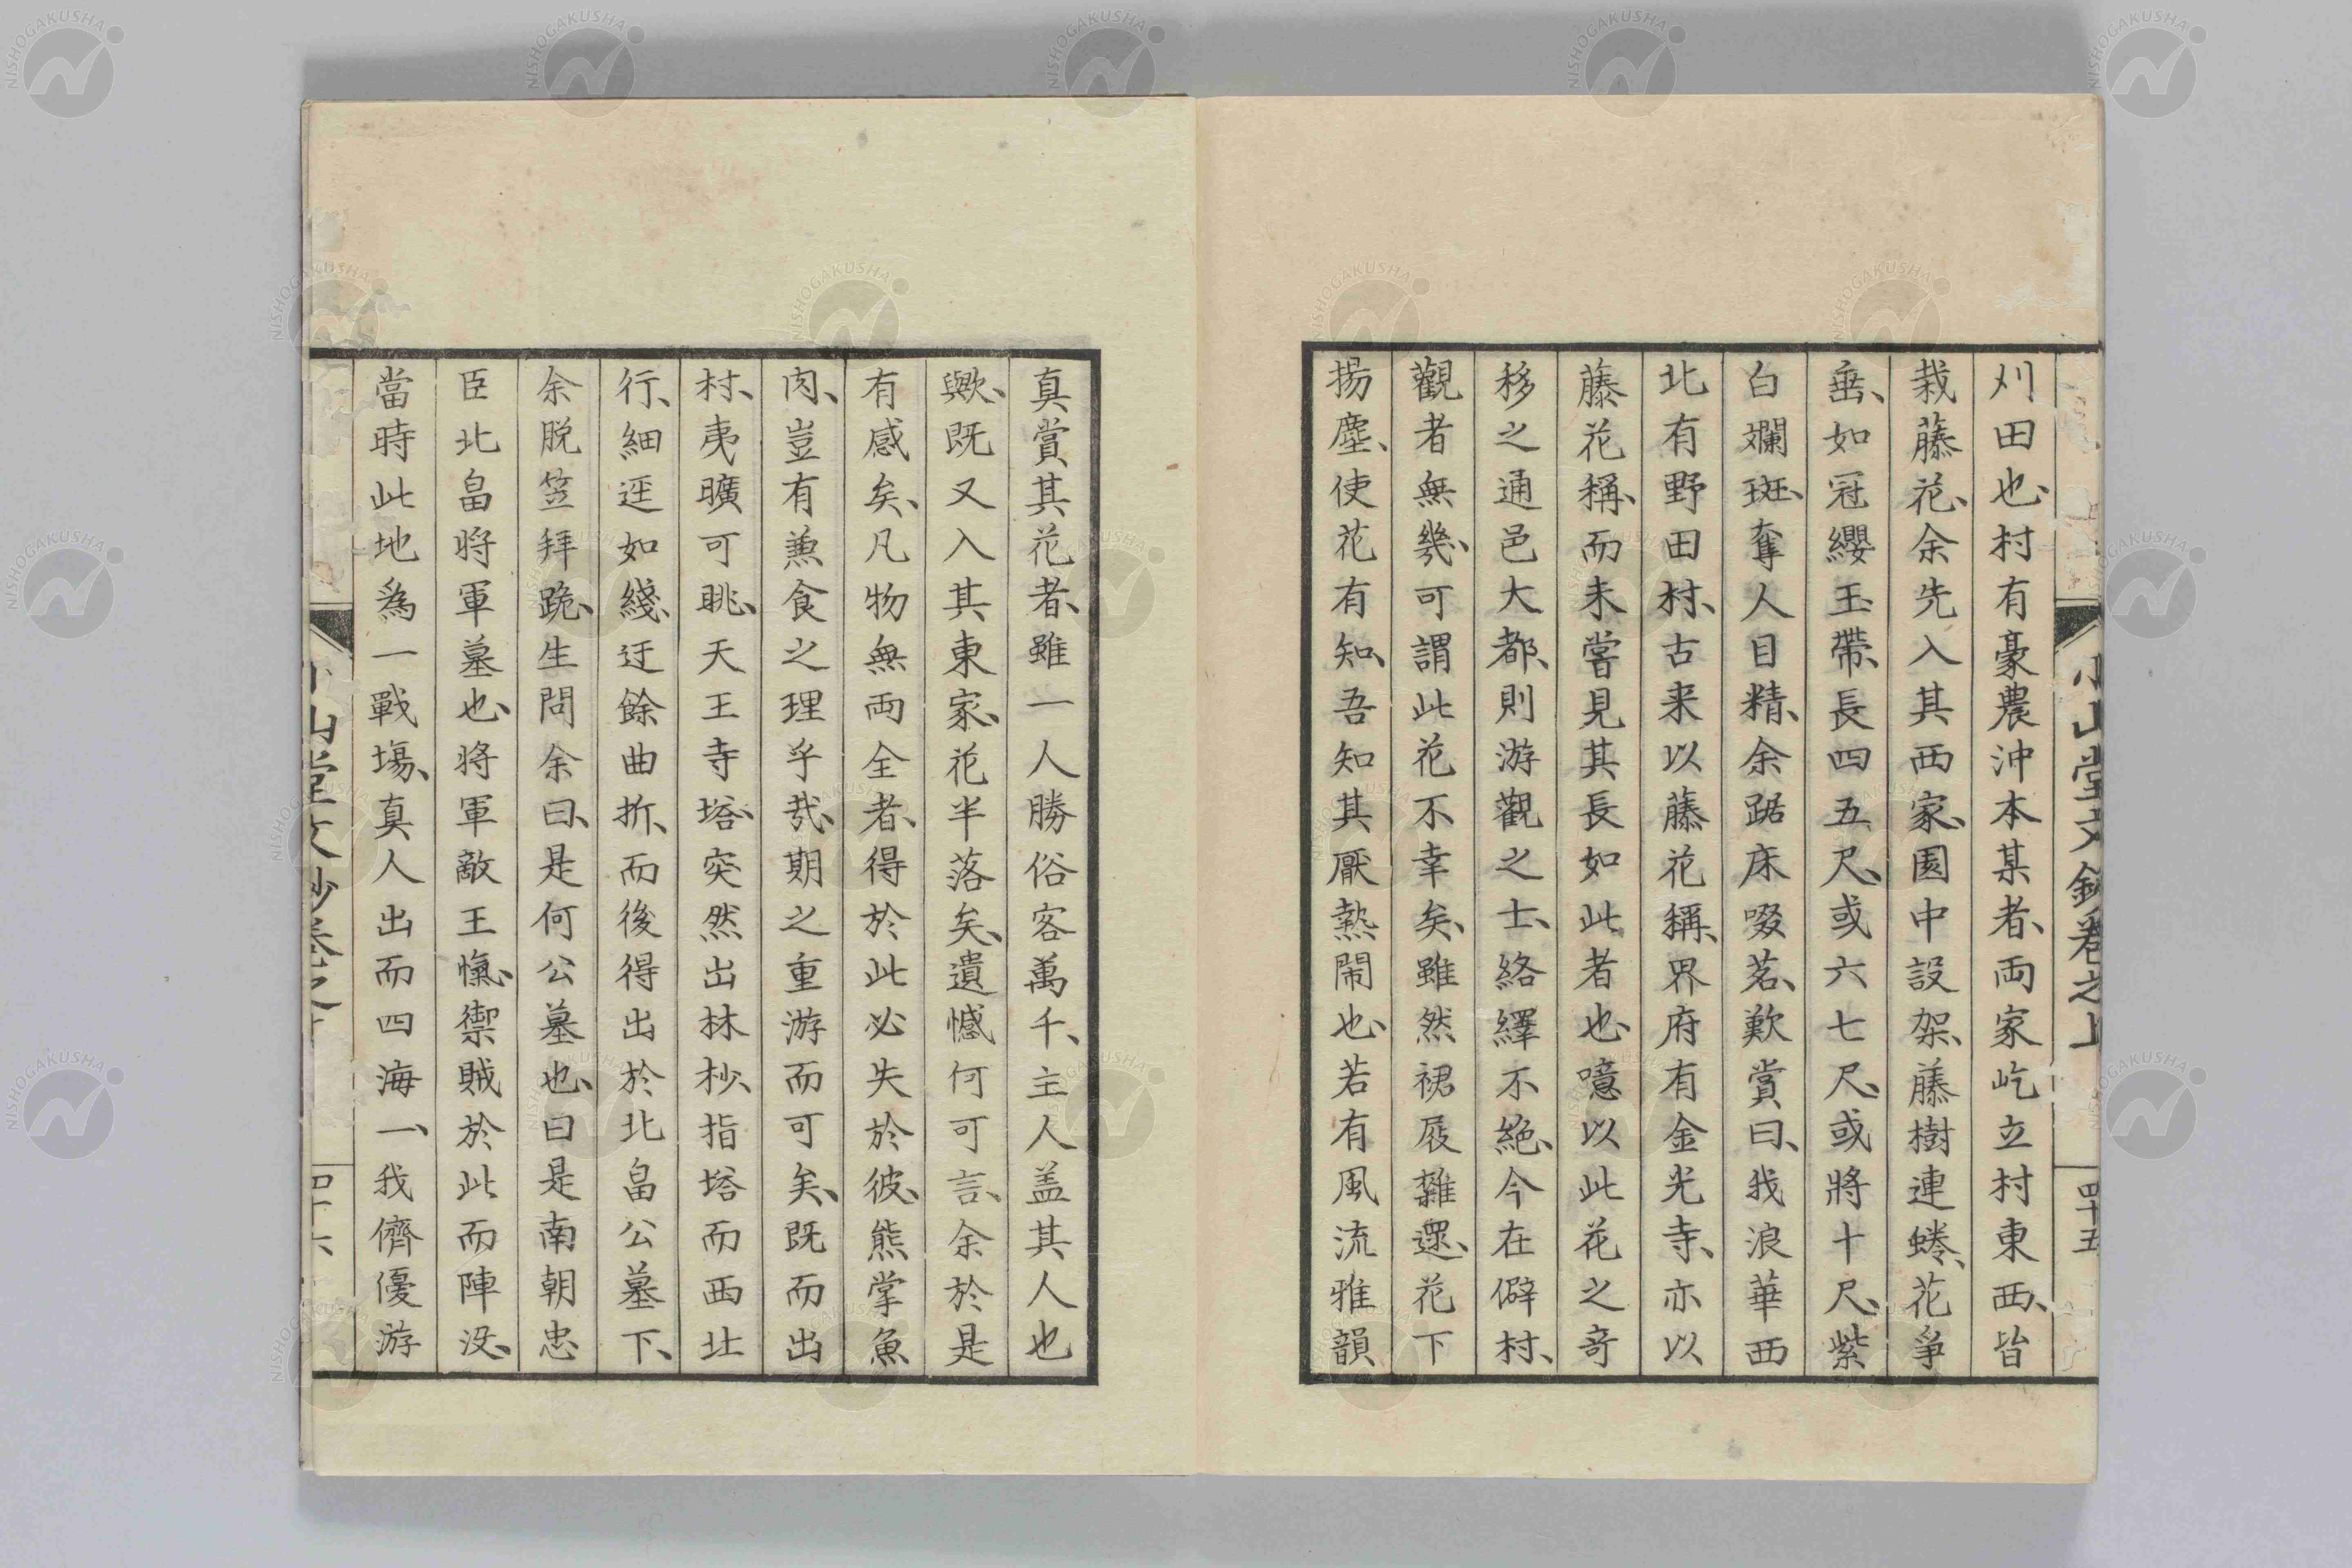 小山堂文鈔卷之上
四十五
刈田也、村有豪農沖本某者、両家屹立村東西、皆
栽藤花、余先入其西家、園中設架、藤樹連蜷、花爭
垂、如冠纓玉帶、長四五尺、或六七尺、或將十尺、紫
白斕斑、奪人目精、余踞床啜茗、歎賞曰、我浪華西
北有野田村、古来以藤花稱、界府有金光寺、亦以
藤花稱、而未嘗見其長如此者也、噫以此花之奇
移之通邑大都、則游觀之士、絡繹不絶、今在僻村、
觀者無幾、可謂此花不幸矣、雖然裙屐雜遝、花下
揚塵、使花有知、吾知其厭熱閙也、若有風流雅韻
真賞其花者、雖一人勝俗客萬千、主人盖其人也
歟、既又入其東家、花半落矣、遺憾何可言、余於是
有感矣、凡物無両全者、得於此必失於彼、熊掌魚
肉、豈有兼食之理乎哉、期之重游而可矣、既而出
村、夷曠可眺、天王寺塔、突然出林杪、指塔而西北
行、細逕如綫、迂餘曲折、而後得出於北畠公墓下、
余脱笠拜跪、生問余曰、是何公墓也、曰是南朝忠
臣北畠將軍墓也、將軍敵王愾、禦賊於此而陣没、
當時此地為一戰場、真人出而四海一、我儕優游
小山堂文鈔卷之上
四十六